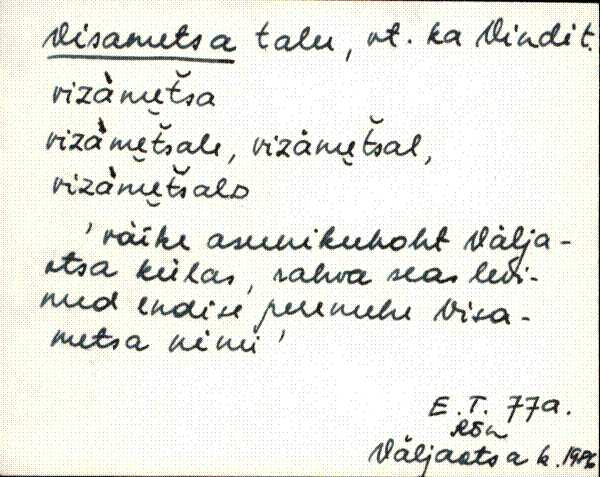 Visametsa talu, vt. ka Vindit.
vizàmet̮̆sa
vizàmet̮̆sale, vizàmet̮̆sal,
vizàmet̮̆salᴅ
'väike asunikukoht Välja-
otsa külas, rahva seas levi-
nud endise peremehe Visa-
metsa nimi'
E. T. 77a.
Rõu
Väljaotsa k. 1986